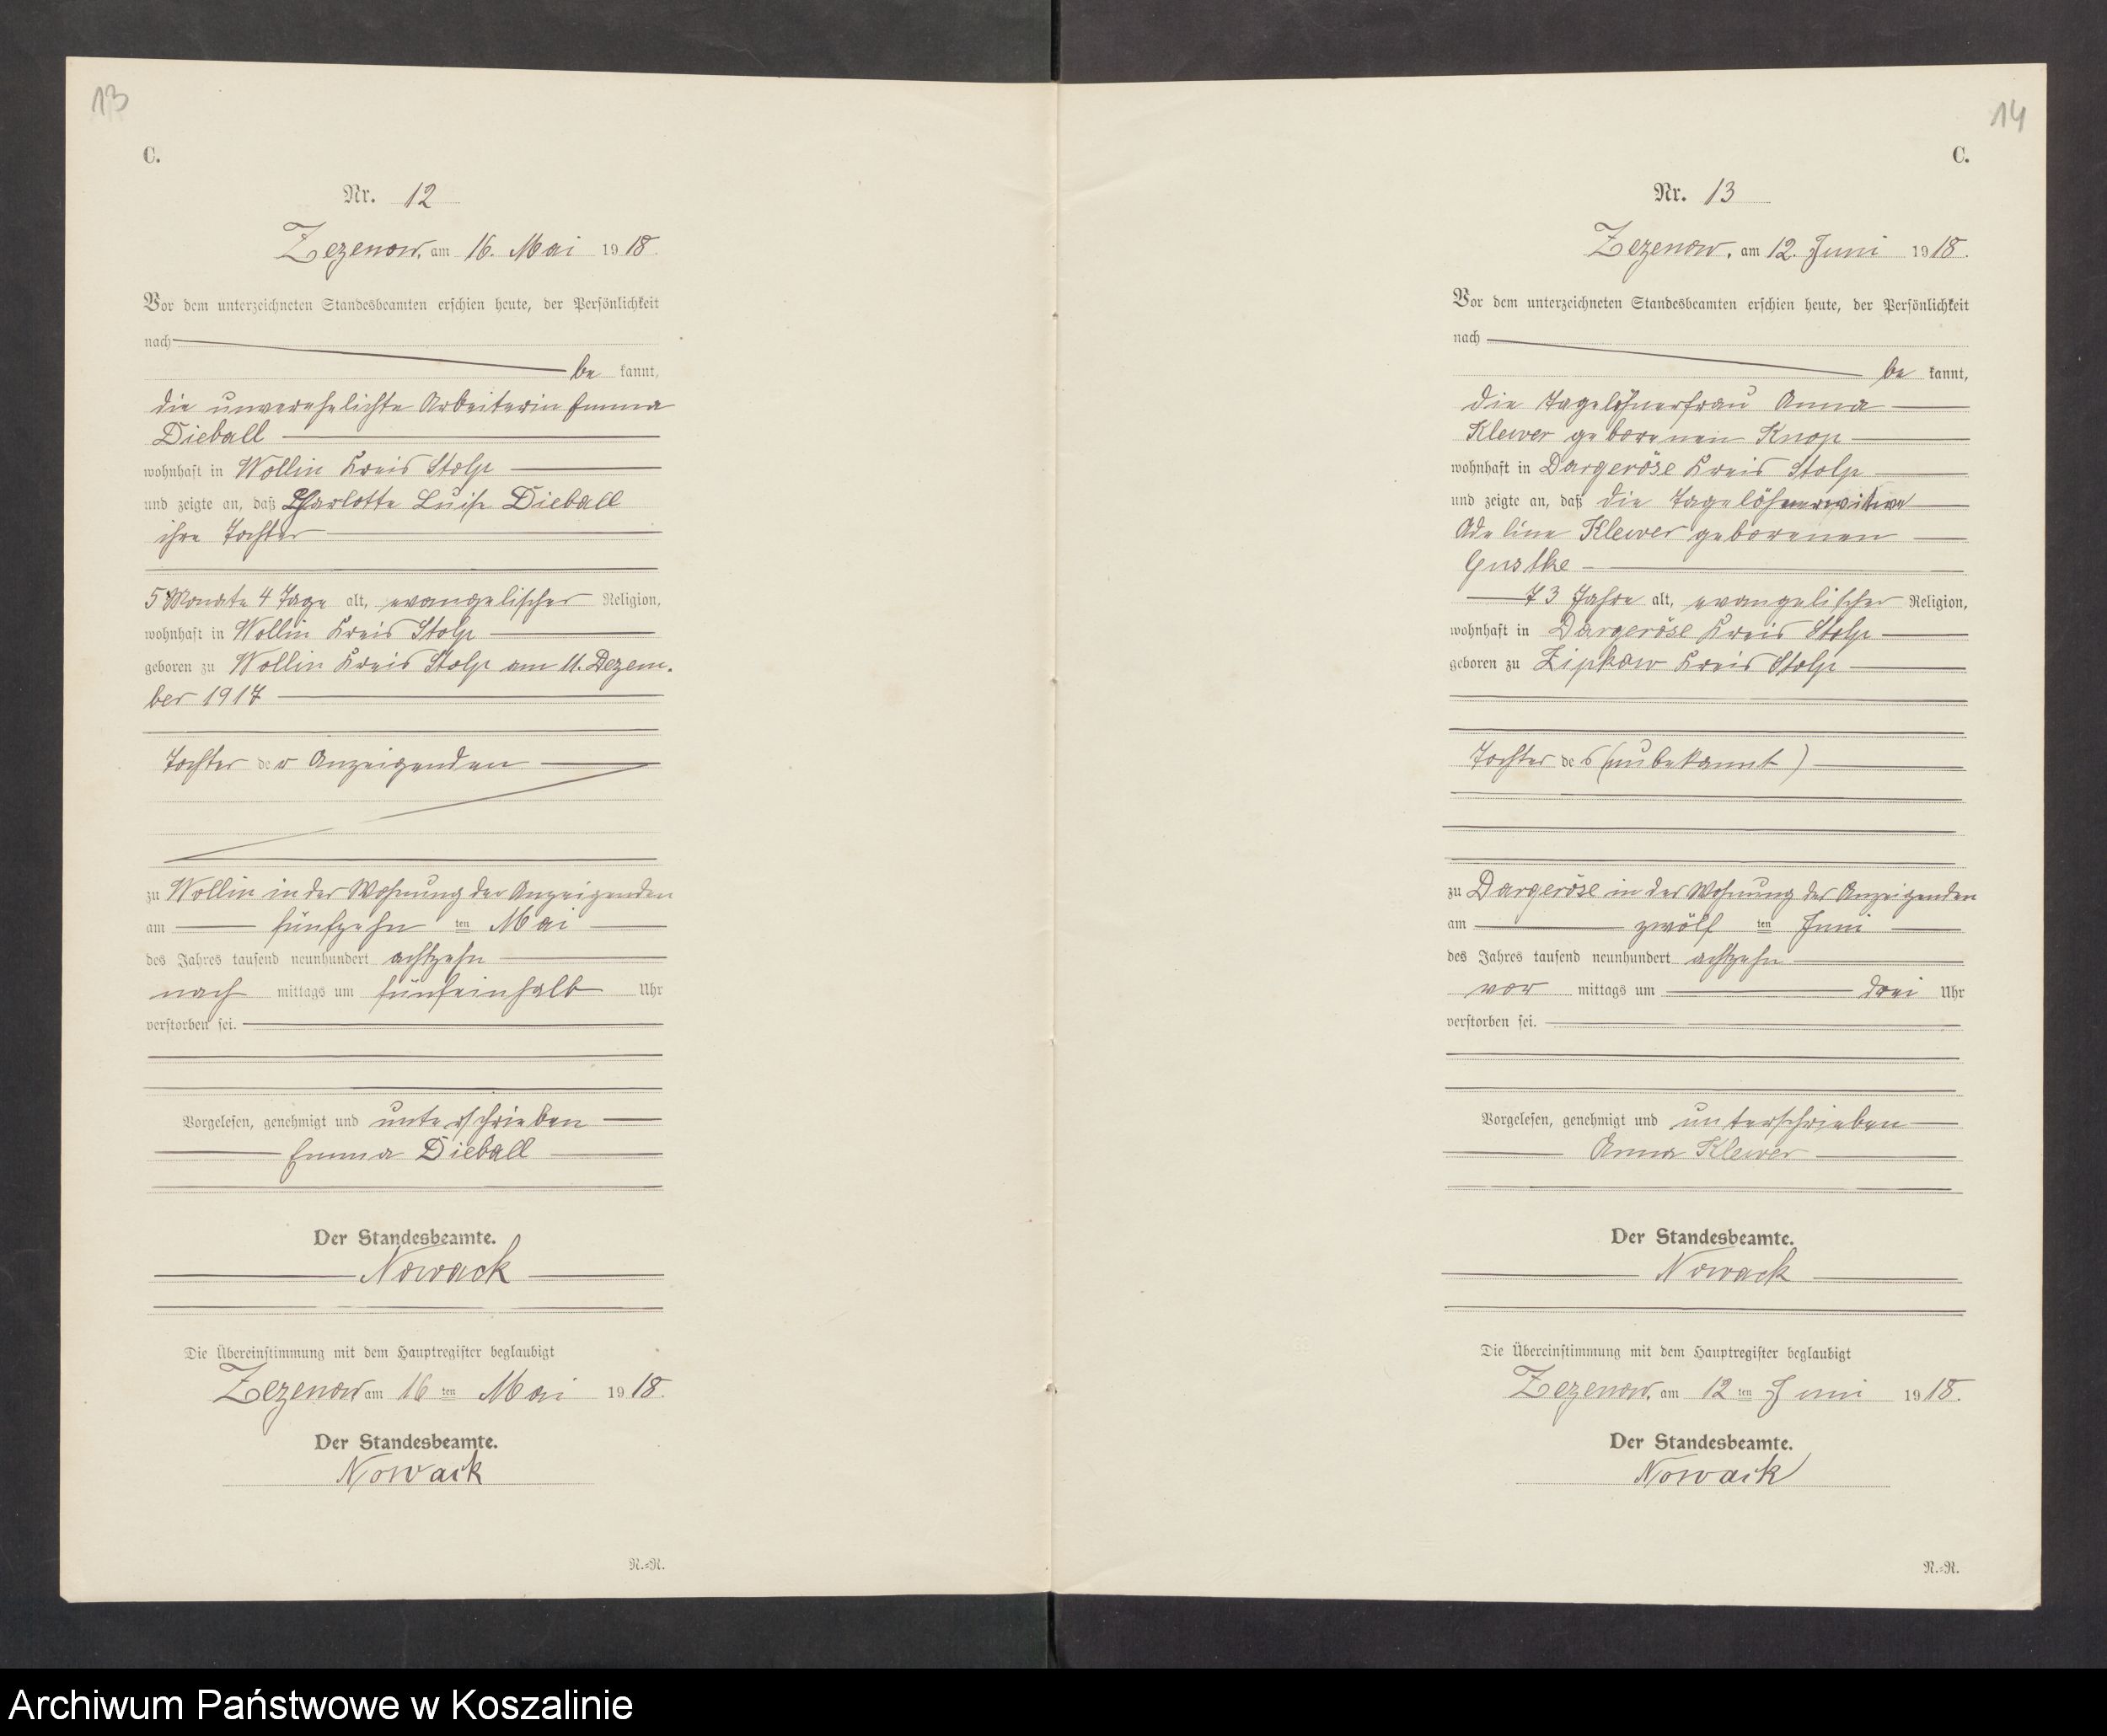 13
C.
Nr. 12
Zezenow, am 16. Mai 1918.
Vor dem unterzeichneten Standesbeamten erschien heute, der Persönlichkeit
nach
be kannt,
die unverehelichte Arbeiterin Emma
Dieball
wohnhaft in Wollin Kreis Stolp
und zeigte an, daß Charlotte Luise Dieball
ihre Tochter
5 Monate 4 Tage alt, evangelischer Religion,
wohnhaft in Wollin Kreis Stolp
geboren zu Wollin Kreis Stolp am 11. Dezem-
ber 1917
Tochter der Anzeigenden
zu Wollin in der Wohnung der Anzeigenden
am fünfzehn ten Mai
des Jahres tausend neunhundert achtzehn
nach mittags um fünfeinhalb Uhr
verstorben sei.
Vorgelesen, genehmigt und unterschrieben
Emma Dieball
Der Standesbeamte.
Nowack
Die Übereinstimmung mit dem Hauptregister beglaubigt
Zezenow am 16 ten Mai 1918.
Der Standesbeamte.
Nowack
N.=N.
14
C.
Nr. 13
Zezenow, am 12. Juni 1918.
Vor dem unterzeichneten Standesbeamten erschien heute, der Persönlichkeit
nach
be kannt,
die Tagelöhnerfrau Anna
Klewer geborenen Knop
wohnhaft in Dargeröse Kreis Stolp
und zeigte an, daß die Tagelöhnerwitwe
Adeline Klewer geborenen
Gustke
73 Jahre alt, evangelischer Religion,
wohnhaft in Dargeröse Kreis Stolp
geboren zu Zipkow Kreis Stolp
Tochter des (unbekannt)
zu Dargeröse in der Wohnung der Anzeigenden
am zwölf ten Juni
des Jahres tausend neunhundert achtzehn
vor mittags um drei Uhr
verstorben sei.
Vorgelesen, genehmigt und unterschrieben
Anna Klewer
Der Standesbeamte.
Nowack
Die Übereinstimmung mit dem Hauptregister beglaubigt
Zezenow, am 12 ten Juni 1918.
Der Standesbeamte.
Nowack
N.=N.
Archiwum Państwowe w Koszalinie